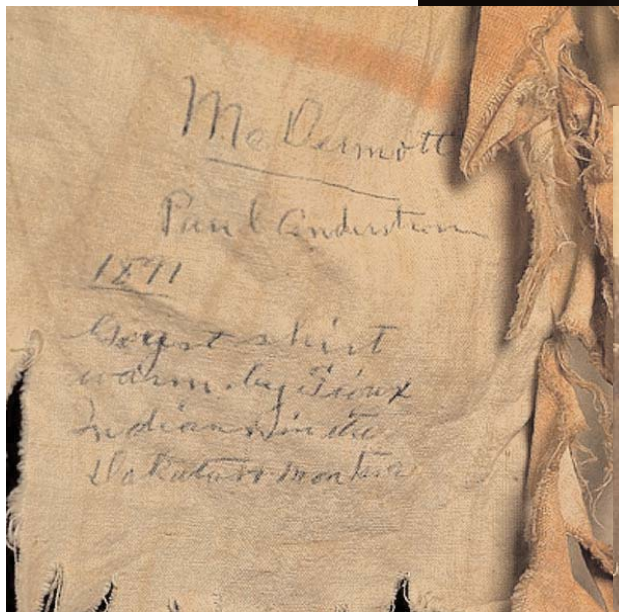 McDermott
Paul Anderstrom
1891
Gogst shirt
warn by Sioux
Indians in the
Dakatas or Montna